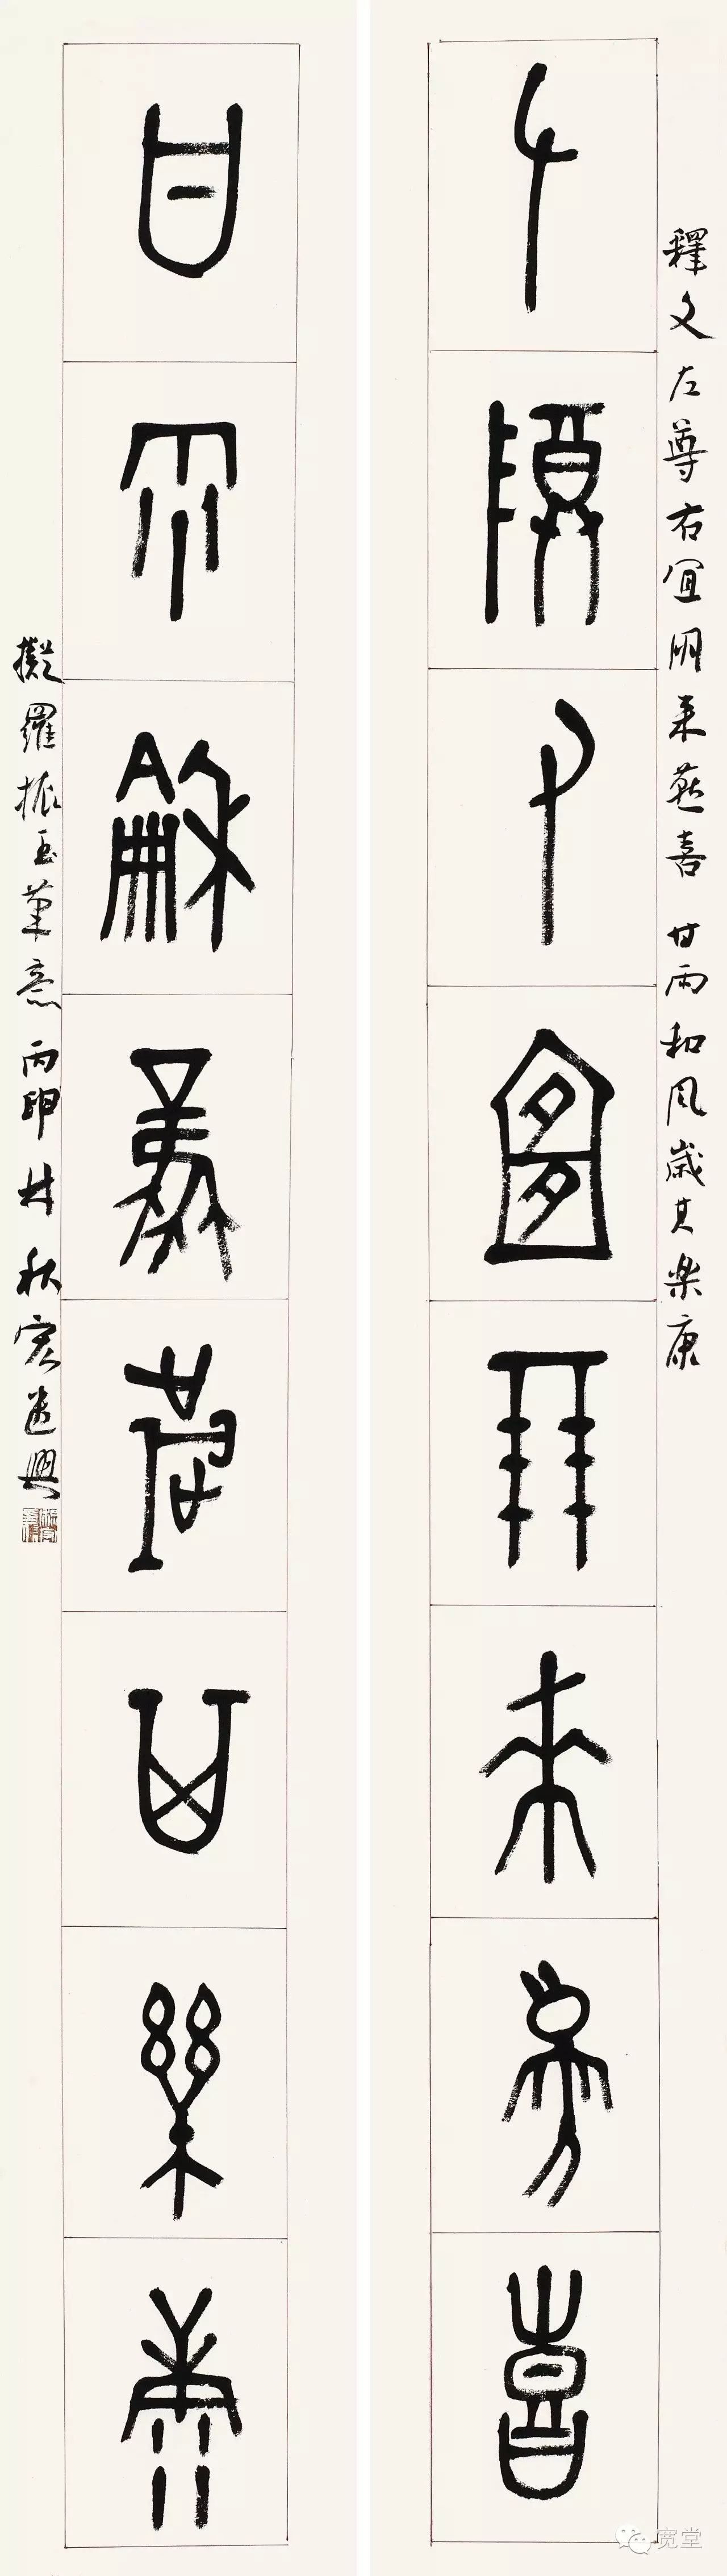 釋文 左尊右宜朋来燕喜 甘雨和风歲其楽康
左尊右宜朋來燕喜
甘雨龢風歲其樂康
擬羅振玉筆意 丙申 秋
宽堂